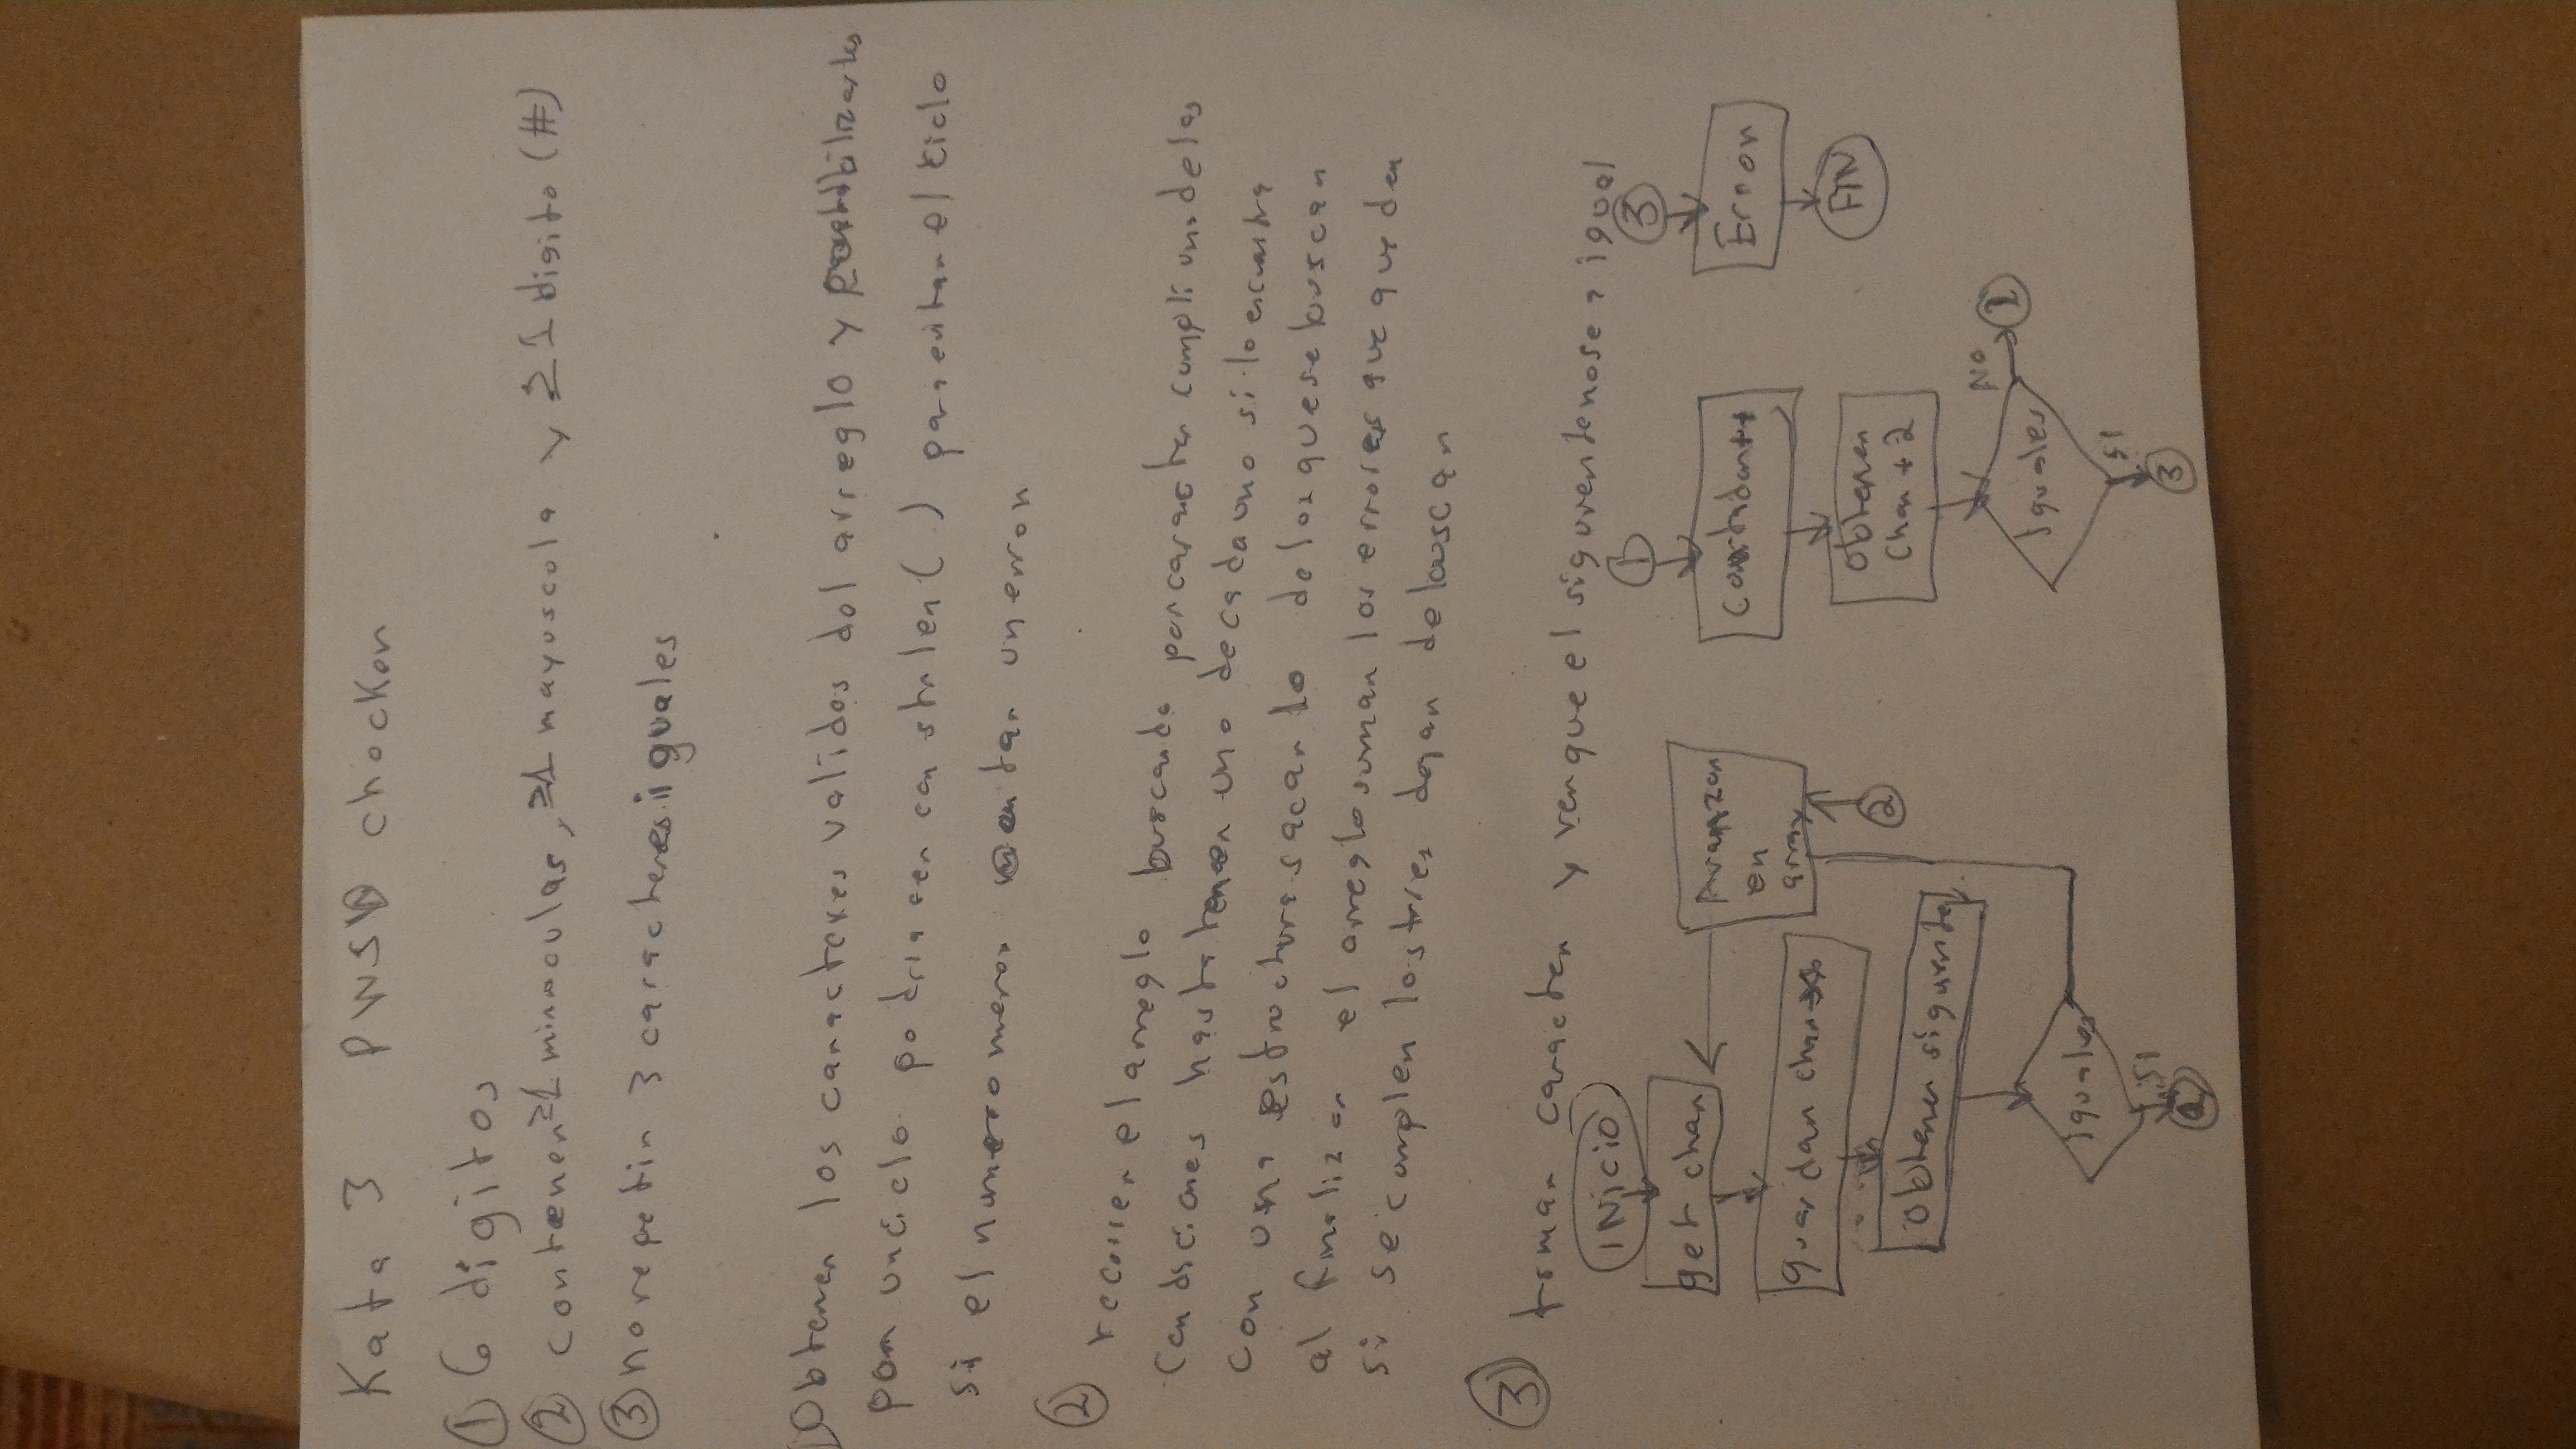 Kata 3 PWSD checker
① 6 digitos
② contener ≥1 minusculas, ≥1 mayuscula y ≥1 digito (#)
③ no repetir 3 caracteres iguales
Obtener los caracteres validos del arreglo y
por un ciclo podria ser con strlen( ) para evitar el ciclo
si el numero menor un error
②
recorrer el arreglo buscando por caracter cumpli una de las
condiciones hasta tener uno de cada uno si lo encuentra
con una estructura sacarlo de los que se buscan
al finalizar el arreglo suman los errores que queden
si se cumplen los tres dejar de buscar
③ tomar caracter y ver que el siguiente no sea igual
INICIO
get char
guardar char
obtener siguiente
iguales
SI
Avanzar
en
array
②
①
contador++
obtener
char + 2
iguales
NO
②
SI
③
③
Error
FIN